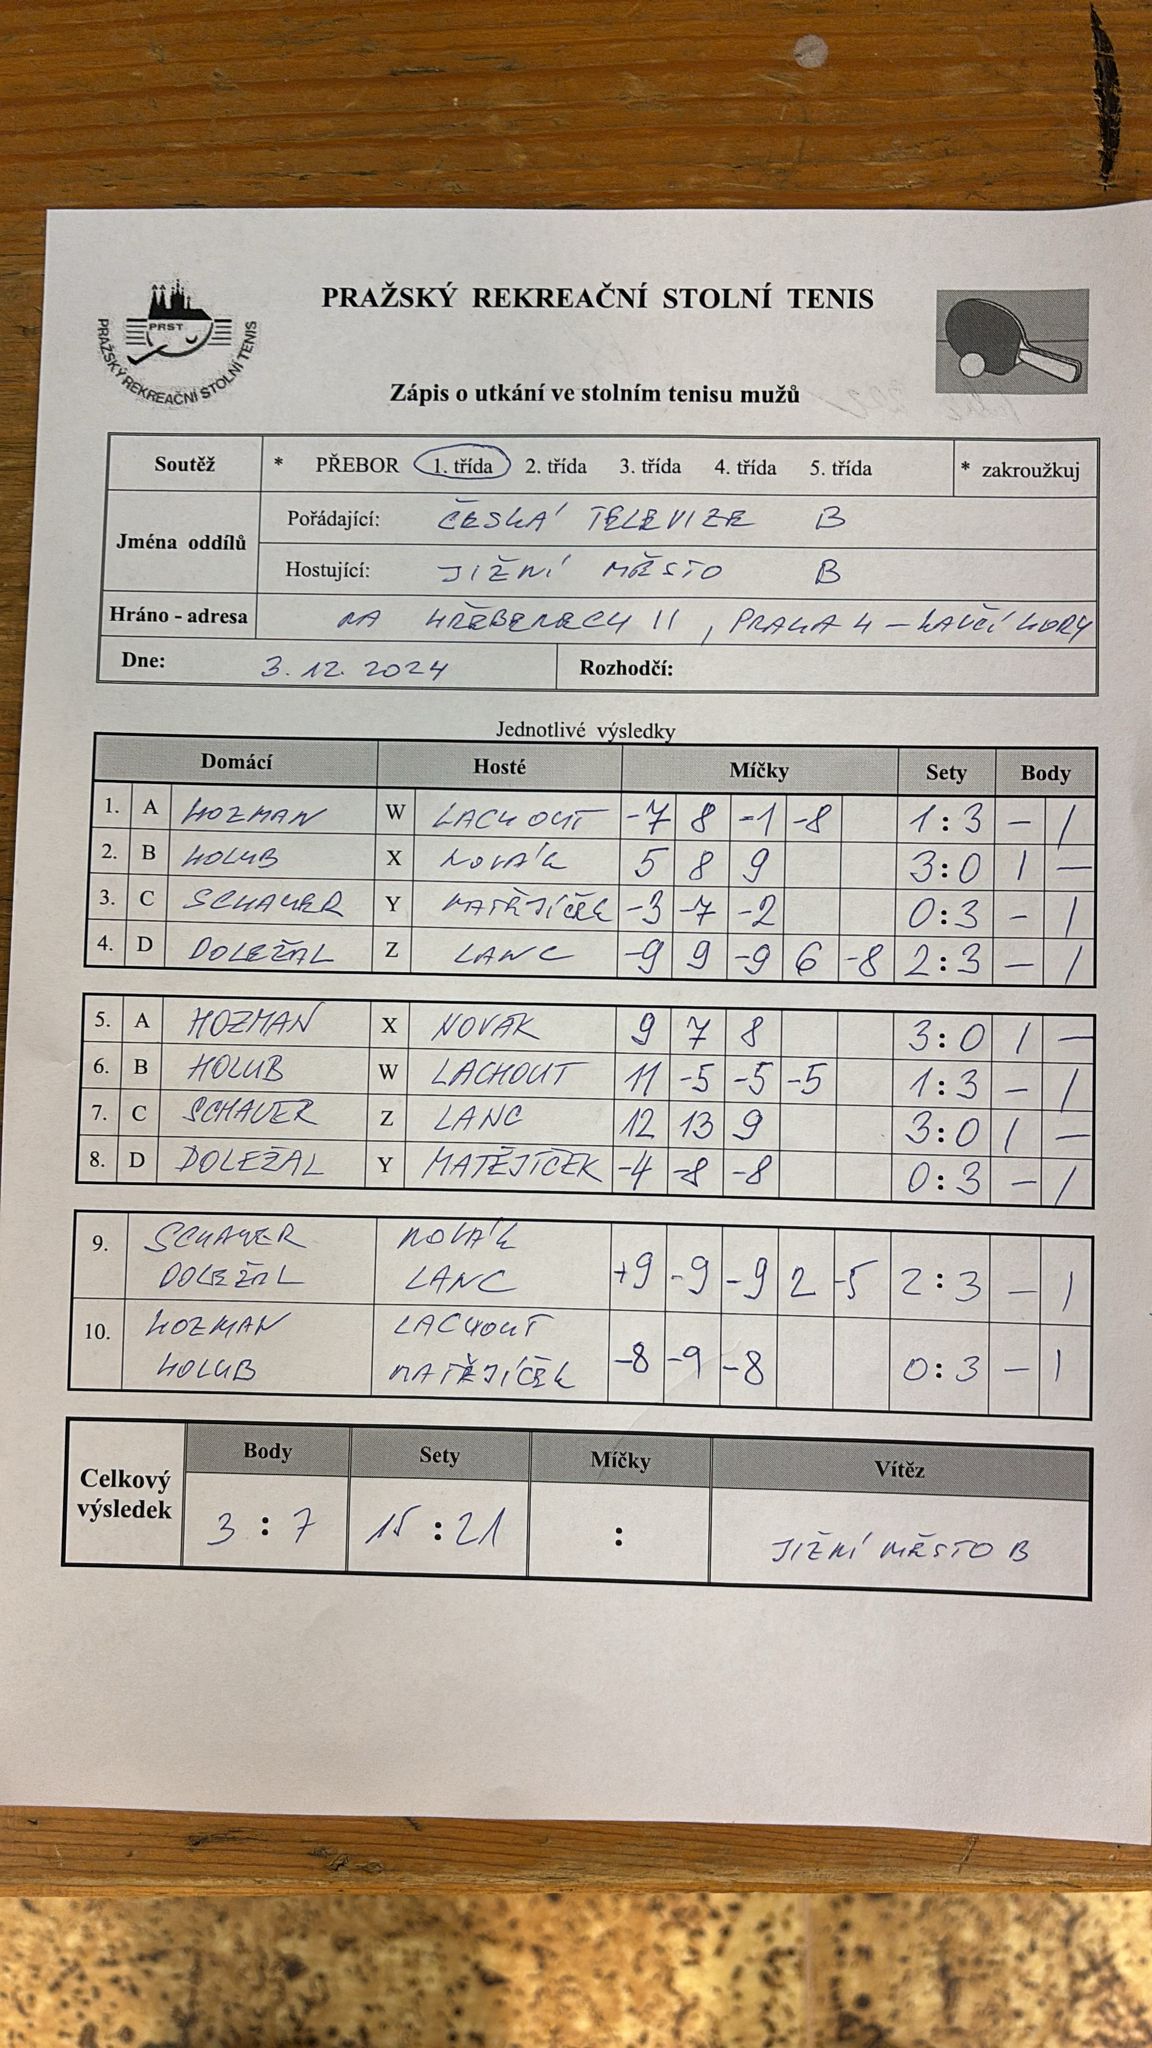 PRAŽSKÝ REKREAČNÍ STOLNÍ TENIS
PRST
PRAŽSKÝ REKREAČNÍ STOLNÍ TENIS
Zápis o utkání ve stolním tenisu mužů
Soutěž * PŘEBOR 1. třída 2. třída 3. třída 4. třída 5. třída * zakroužkuj
Jména oddílů
Pořádající: ČESKÁ TELEVIZE B
Hostující: JIŽNÍ MĚSTO B
Hráno - adresa NA HŘEBENECH II, PRAHA 4 - KAVČÍ HORY
Dne: 3.12.2024 Rozhodčí:
Jednotlivé výsledky
Domácí Hosté Míčky Sety Body
1. A HOZMAN W LACHOUT -7 8 -1 -8 1:3 - 1
2. B HOLUB X NOVÁK 5 8 9 3:0 1 -
3. C SCHAUER Y MATĚJÍČEK -3 -7 -2 0:3 - 1
4. D DOLEŽAL Z LANC -9 9 -9 6 -8 2:3 - 1
5. A HOZMAN X NOVÁK 9 7 8 3:0 1 -
6. B HOLUB W LACHOUT 11 -5 -5 -5 1:3 - 1
7. C SCHAUER Z LANC 12 13 9 3:0 1 -
8. D DOLEŽAL Y MATĚJÍČEK -4 -8 -8 0:3 - 1
9. SCHAUER NOVÁK
DOLEŽAL LANC +9 -9 -9 2 -5 2:3 - 1
10. HOZMAN LACHOUT
HOLUB MATĚJÍČEK -8 -9 -8 0:3 - 1
Celkový výsledek Body Sety Míčky Vítěz
3 : 7 15 : 21 : JIŽNÍ MĚSTO B